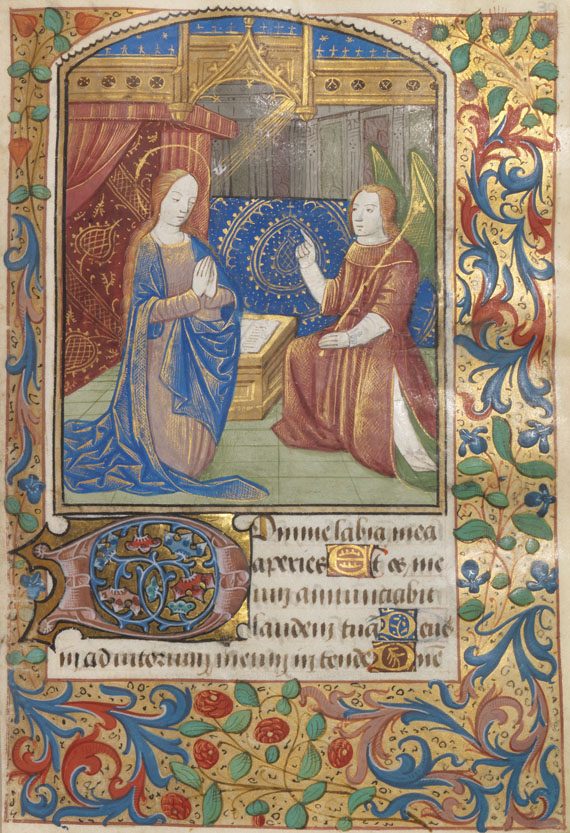 Domine labia mea
aperies Et os me
um annunciabit
laudem tua Deus
in adiutorium meum in tende Dne